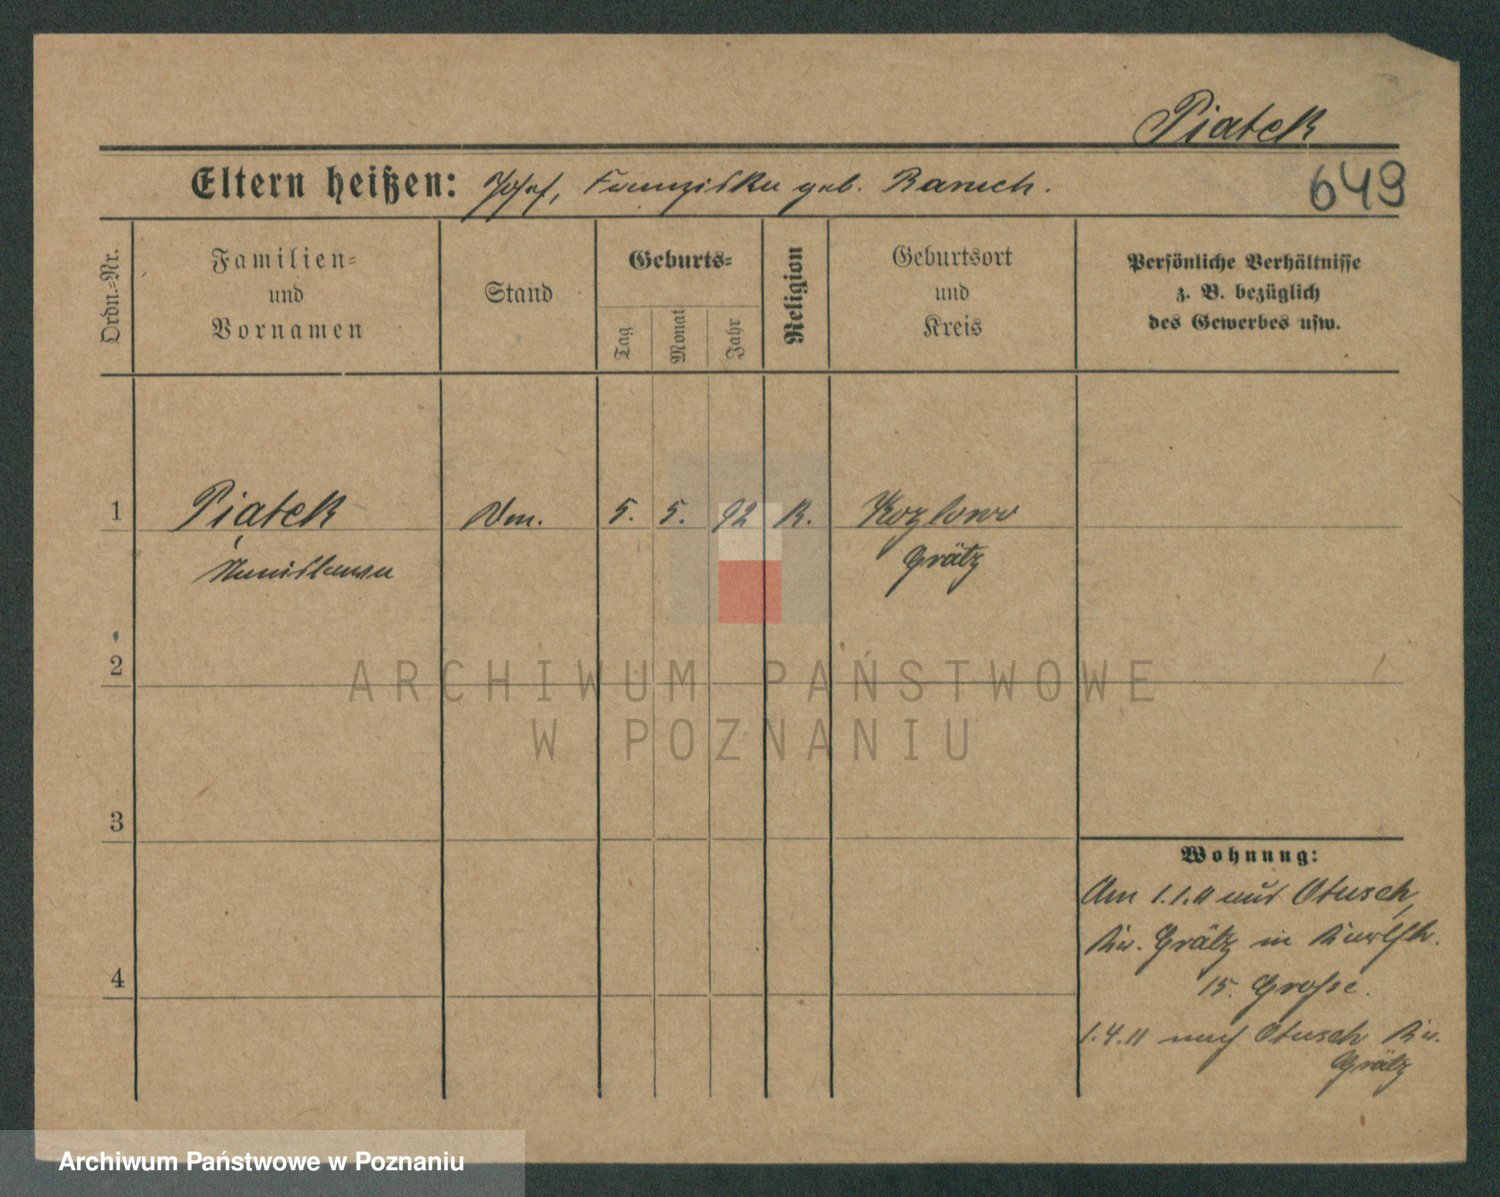 Piatek
Eltern heißen: Josef, Franziska geb. Banich.
649
Ordn.-Nr.
Familien-
und
Vornamen
Stand
Geburts-
Tag
Monat
Jahr
Religion
Geburtsort
und
Kreis
Persönliche Verhältnisse
z. B. bezüglich
des Gewerbes usw.
1
Piatek
Stanislawa
5. 5. 92 K. Kozlowo
Grätz
2
ARCHIWUM PAŃSTWOWE
W POZNANIU
3
Wohnung:
Am 1.1.11 aus Otusch,
Kr. Grätz in
4
15.
1.4.11 nach Otusch Kr.
Grätz
Archiwum Państwowe w Poznaniu